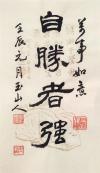 萬事如意
自勝者強
壬辰元月玉山人